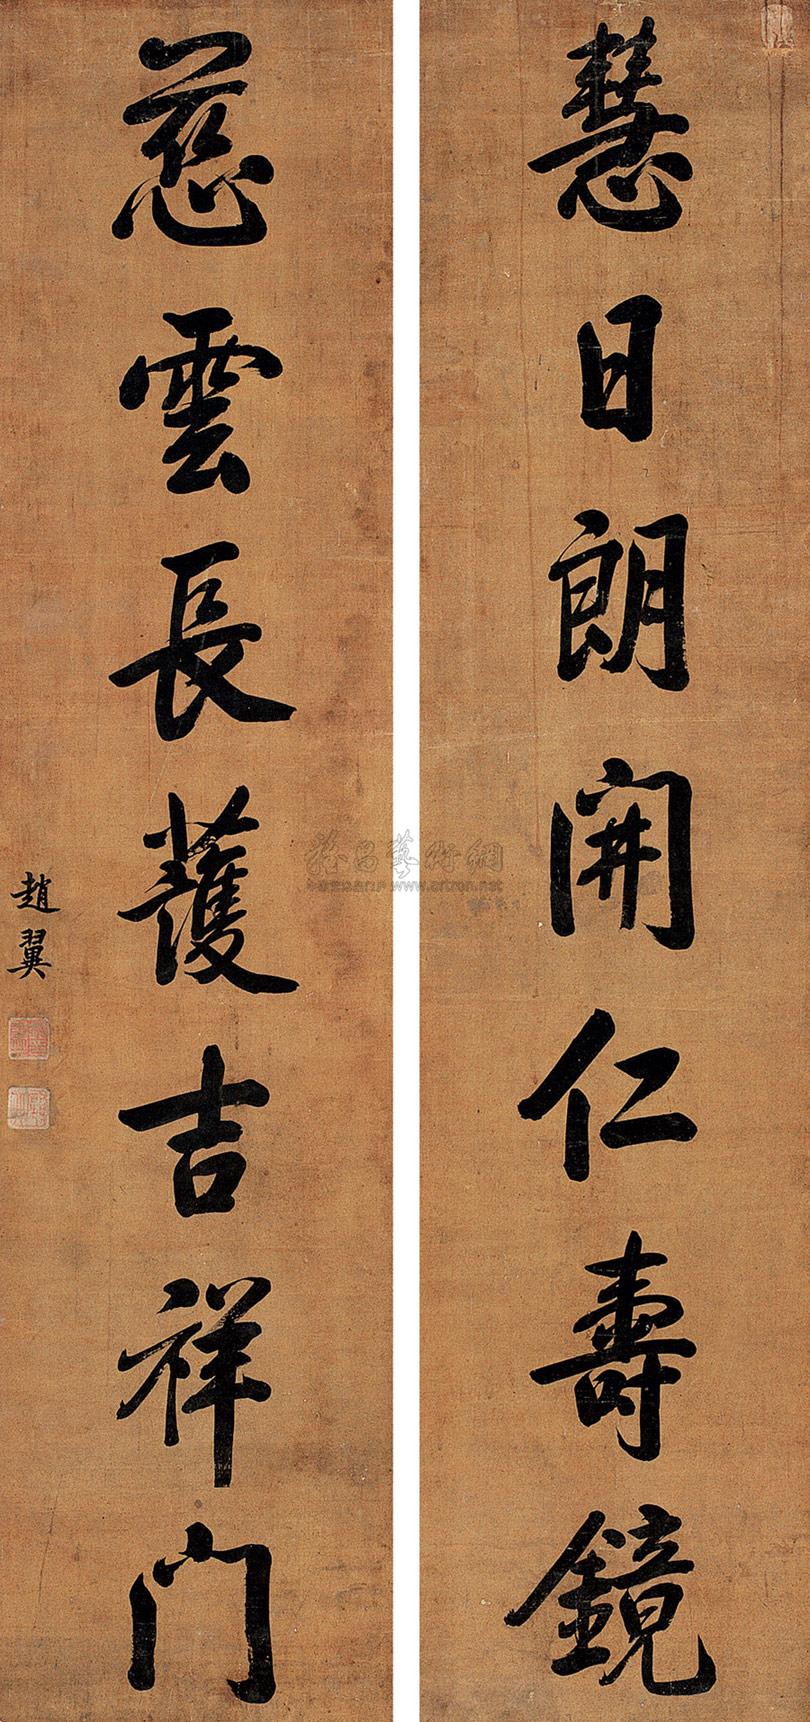 慧日朗開仁壽鏡
慈雲長護吉祥门
趙翼
www.artron.net